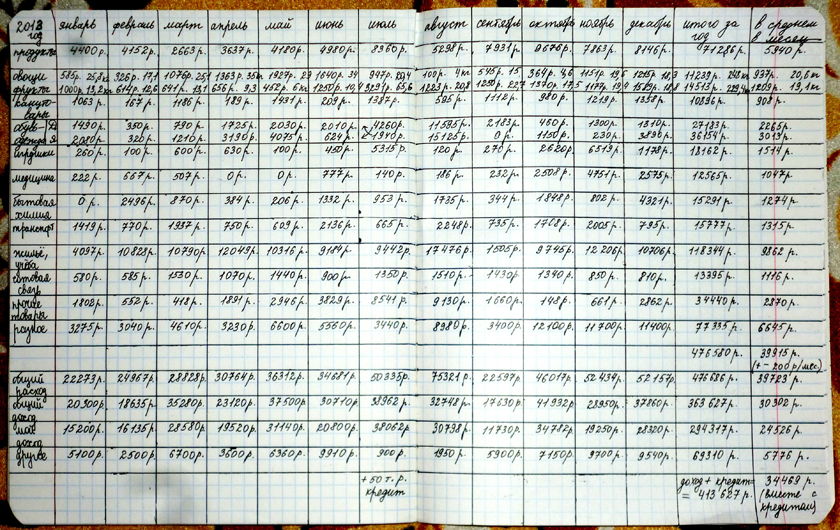 2013 год январь февраль март апрель май июнь июль август сентябрь октябрь ноябрь декабрь итого за год в среднем в месяц
продукты 4400р. 4152р. 2663р. 3637р. 4180р. 4980р. 8960р. 5298р. 7931р. 7863р. 8146р. 71286р. 5940р.
овощи 565р. 326р. 17,1 1076р. 1363р. 1927р. 1640р. 34 947р. 100р. 4кг 545р. 15 364р. 1151р. 1215р. 11239р. 937р. 20,6кг
фрукты 1000р. 13,2кг 614р. 12,6 641р. 13,1 656р. 9,3 452р. 6кг 1250р. 1223р. 20,8 1370р. 17,5 14513р. 1209р. 19,1кг
1063р. 167р. 1186р. 189р. 1431р. 209р. 1387р. 595р. 1112р. 980р. 1219р. 1358р. 10896р. 908р.
обувь 1490р. 350р. 790р. 1725р. 2030р. 2010р. 4260р. 2183р. 460р. 1300р. 1310р. 27183р. 2265р.
одежда 2080р. 320р. 1210р. 3190р. 4075р. 624р. 1910р. 15125р. 0р. 1150р. 230р. 36154р. 3013р.
игрушки 260р. 100р. 600р. 630р. 100р. 450р. 5315р. 120р. 270р. 2620р. 6519р. 1178р. 18162р. 1514р.
медицина 222р. 667р. 507р. 0р. 0р. 777р. 140р. 186р. 232р. 2508р. 4751р. 2575р. 12565р. 1047р.
бытовая химия 0р. 2496р. 870р. 384р. 206р. 1332р. 953р. 1735р. 344р. 1848р. 802р. 4321р. 15291р. 1274р.
транспорт 1419р. 770р. 1937р. 750р. 609р. 2136р. 665р. 2248р. 735р. 1708р. 2005р. 795р. 15777р. 1315р.
жильё, учёба 4097р. 10828р. 10790р. 12049р. 10316р. 9184р. 9442р. 17476р. 1505р. 9745р. 12206р. 10706р. 118344р. 9862р.
сотовая связь 580р. 585р. 1530р. 1070р. 1440р. 900р. 1350р. 1510р. 1430р. 1340р. 850р. 810р. 13395р. 1116р.
прочие товары 1802р. 552р. 418р. 1891р. 2946р. 3829р. 8541р. 9130р. 1660р. 148р. 661р. 2862р. 34440р. 2870р.
разное 3275р. 3040р. 4610р. 3230р. 6600р. 5560р. 3440р. 8980р. 3400р. 12100р. 11700р. 11400р. 77335р. 6645р.
476580р. 39915р.
(+-200р/мес.)
общий расход 22273р. 24967р. 28828р. 30764р. 36312р. 34681р. 50335р. 75321р. 22597р. 46017р. 52434р. 52157р. 476686р. 39723р.
общий доход 20300р. 18635р. 35280р. 23120р. 37500р. 30710р. 38962р. 32748р. 17630р. 41932р. 28950р. 37860р. 363627р. 30302р.
мой доход 15200р. 16135р. 28580р. 19520р. 31140р. 20800р. 38062р. 30798р. 11730р. 34782р. 19250р. 28320р. 294317р. 24526р.
другое 5100р. 2500р. 6700р. 3600р. 6360р. 9910р. 900р. 1950р. 5900р. 7150р. 9700р. 9540р. 69310р. 5776р.
+50 т.р. кредит доход + кредит = = 413627р. 34469р.
(вместе с кредитами)